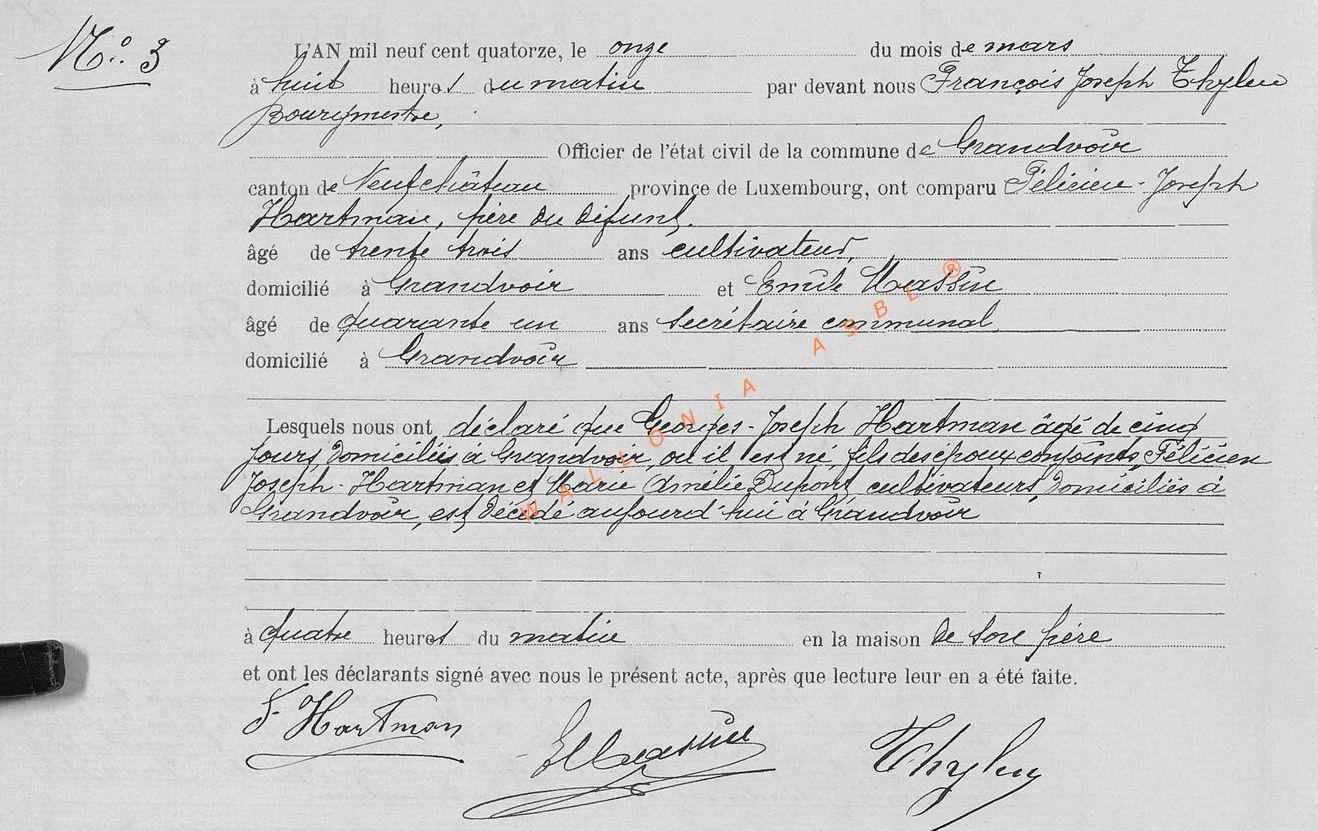 N.o 3
L'AN mil neuf cent quatorze, le onze du mois de mars
à huit heures du matin par devant nous François Joseph Thylen
bourgmestre,
Officier de l'état civil de la commune de Grandvoir
canton de Neufchâteau province de Luxembourg, ont comparu Félicien-Joseph
Hartman, père du défunt,
âgé de trente trois ans cultivateur,
domicilié à Grandvoir et Emile Massin
âgé de quarante un ans secrétaire communal
domicilié à Grandvoir
Lesquels nous ont déclaré que Georges-Joseph Hartman âgé de cinq
jours, domicilié à Grandvoir, où il est né, fils des époux conjoints, Félicien
Joseph-Hartman et Marie Amélie Dupont, cultivateurs, domiciliés à
Grandvoir, est décédé aujourd'hui à Grandvoir
à quatre heures du matin en la maison de son père
et ont les déclarants signé avec nous le présent acte, après que lecture leur en a été faite.
F. Hartman EMassin Thylen
WALLONIA ASBL ®